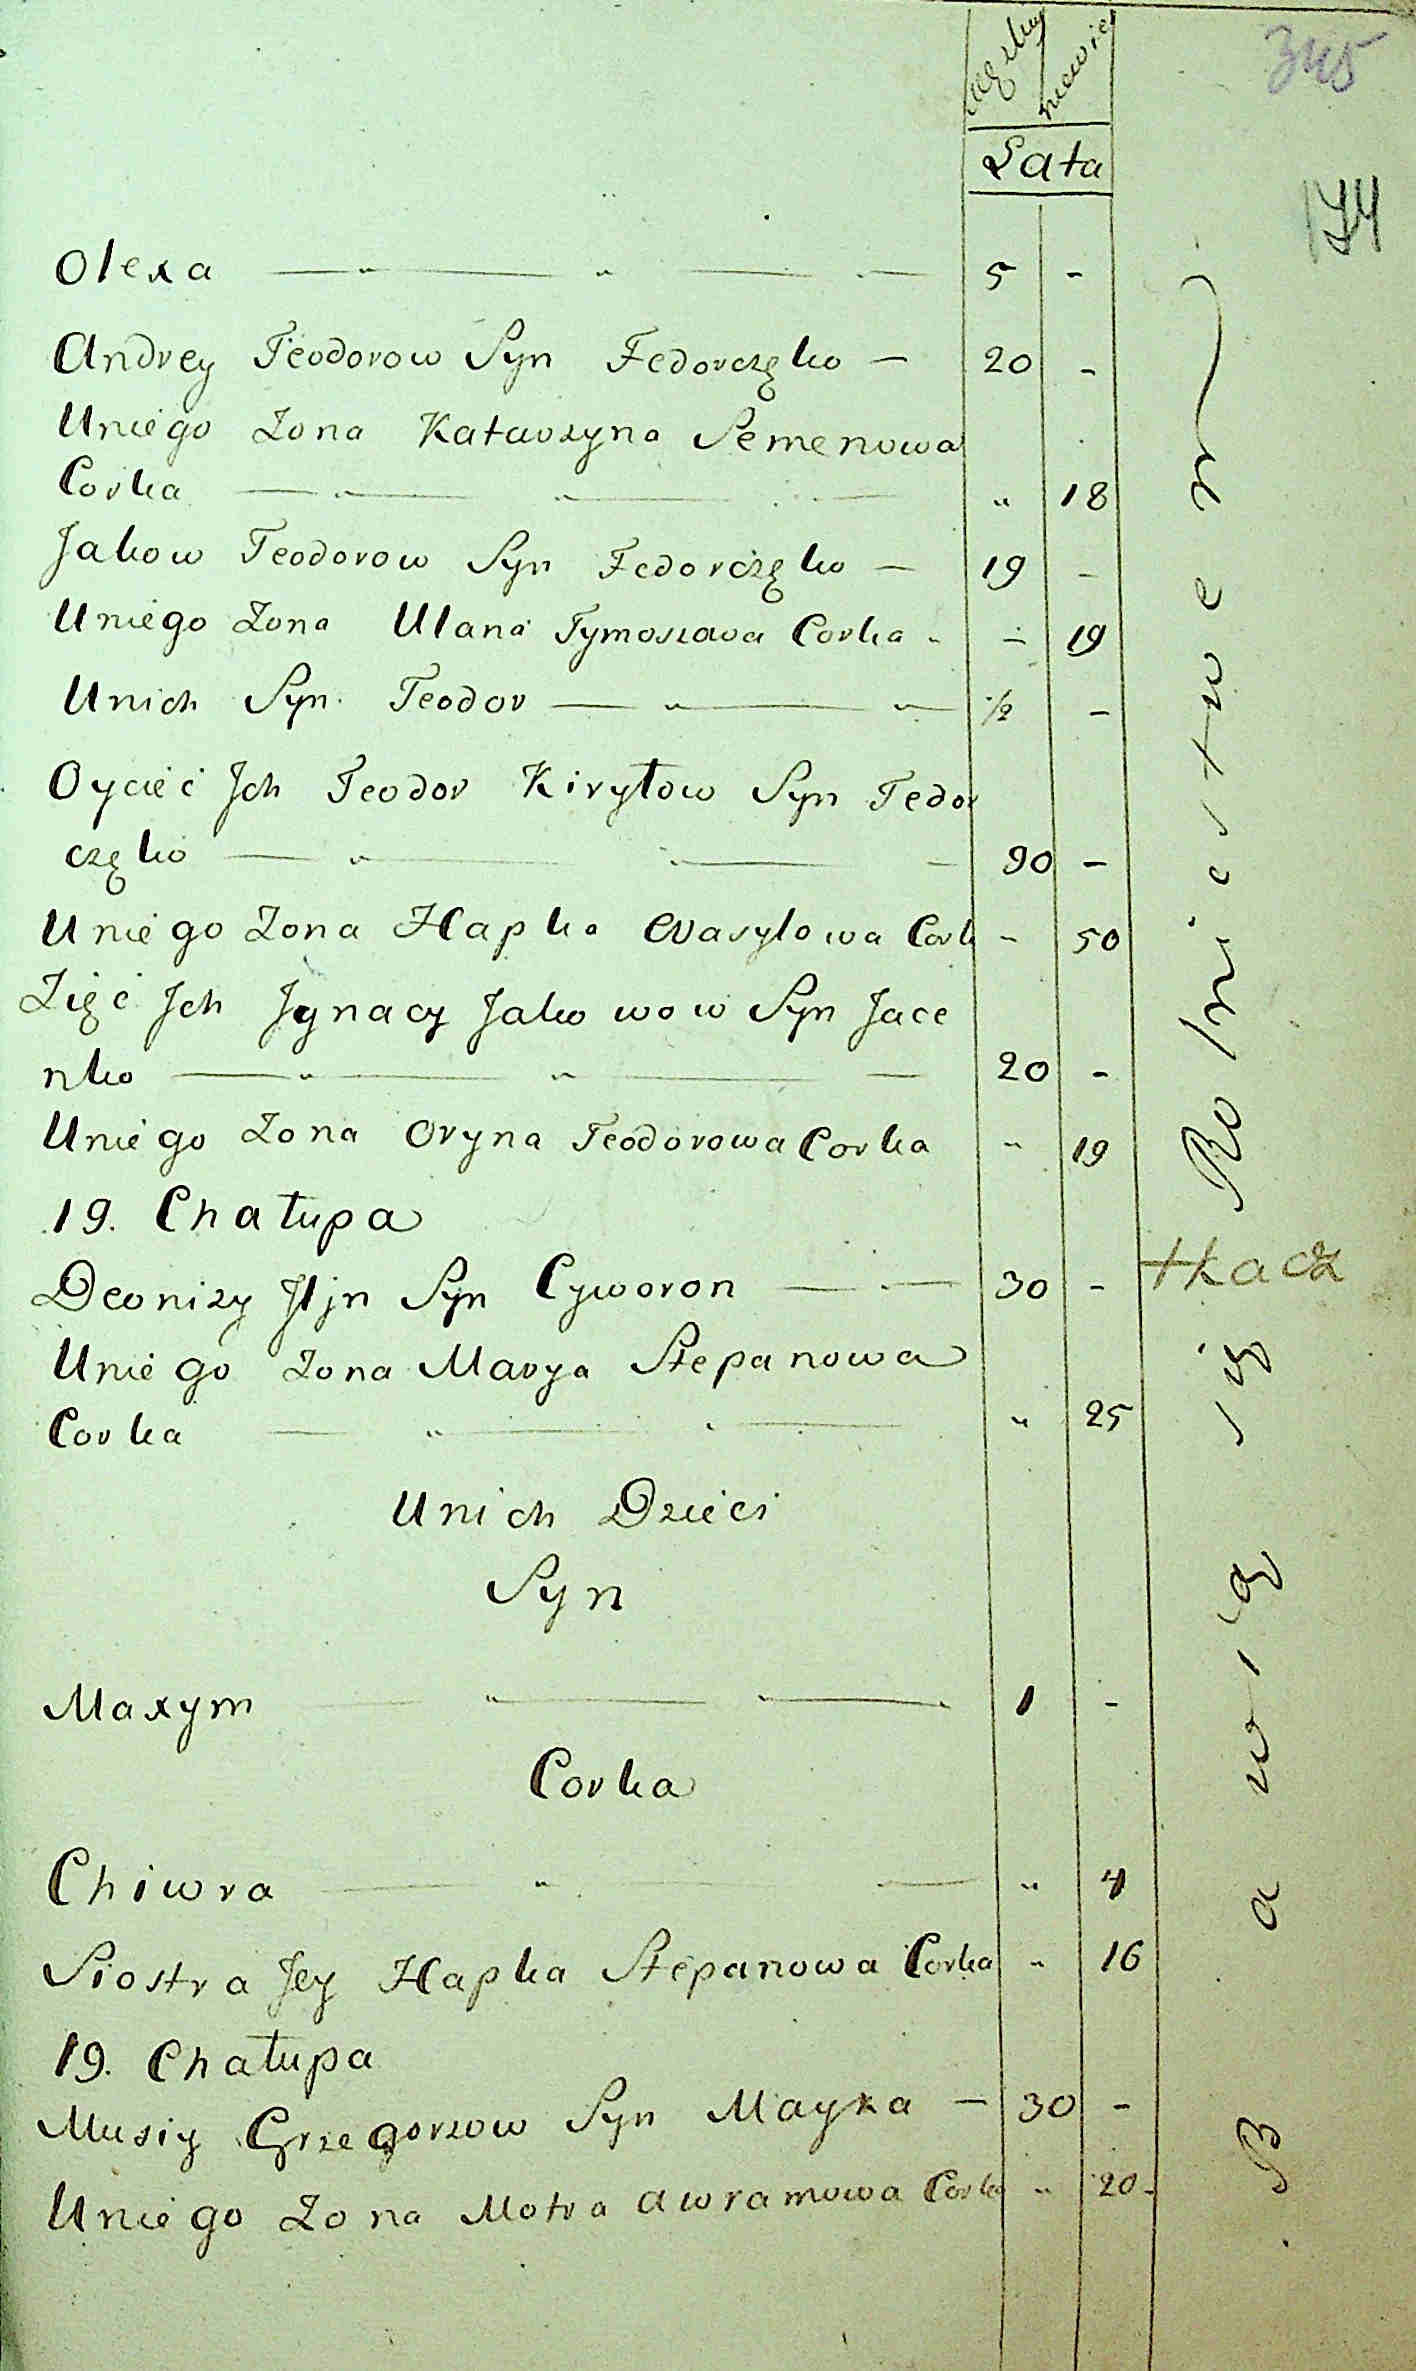 345
174
męzkiey niewie
Lata
Olexa — „ — „ — — 5 -
Andrey Teodorow Syn Fedorczęko — 20 -
Uniego Zona Katarzyna Semenowa
Corka — „ — „ — „ 18
Jakow Teodorow Syn Fedorczęko — 19 -
Uniego Zona Ulana Tymoszowa Corka - - 19
Unich Syn Teodor — „ — „ — ½ -
Oyciec Jch Teodor Kiryłow Syn Fedor
częko — „ — „ — 90 -
Uniego Zona Hapka Wasylowa Cork - 50
Zięć Jch Jgnacy Jakowow Syn Jace
nko — „ — „ — 20 -
Uniego Zona Oryna Teodorowa Corka „ 19
19. Chałupa
Deonizy Jljn Syn Cyworon — — 30 -
Uniego Zona Marya Stepanowa
Corka — „ — „ — „ 25
Unich Dzieci
Syn
Maxym — „ — „ — 1 -
Corka
Chiwra — „ — „ 4
Siostra Jey Hapka Stepanowa Corka „ 16
19. Chałupa
Musiy Grzegorzow Syn Mayka — 30 -
Uniego Zona Motra Awramowa Corka „ 20-
tkacz
Bawią się Rolnictwem